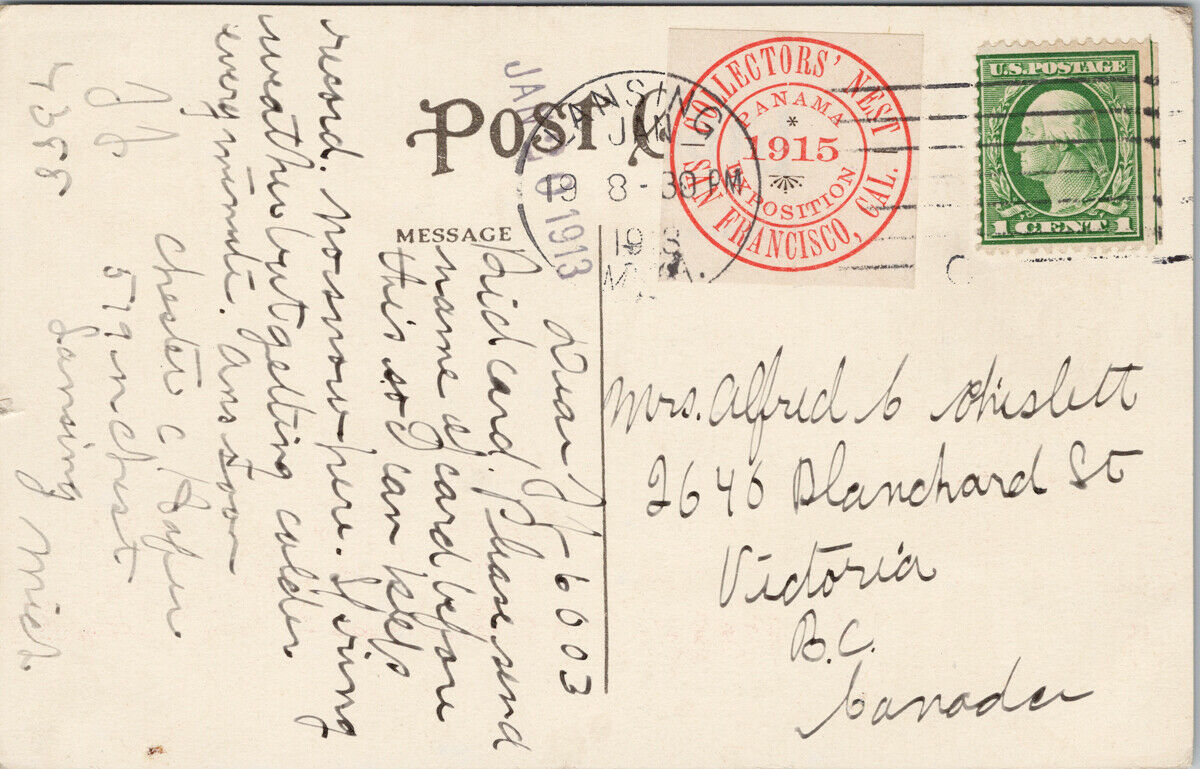 POST C
MESSAGE
JAN 20 1913
LANSING
JAN
19 8-30 PM
191
COLLECTORS' NEST
PANAMA
1915
EXPOSITION
SAN FRANCISCO, CAL.
U.S. POSTAGE
1 CENT 1
Dear 6003
Rec'd card. Please send
name of card before
this so I can keep
record. No snow here. Spring
weather but getting colder
every minute. Ans soon
4388
Chester C
519 St
Lansing Mich.
Mrs. Alfred C Chislett
2646 Blanchard St
Victoria
B.C.
Canada